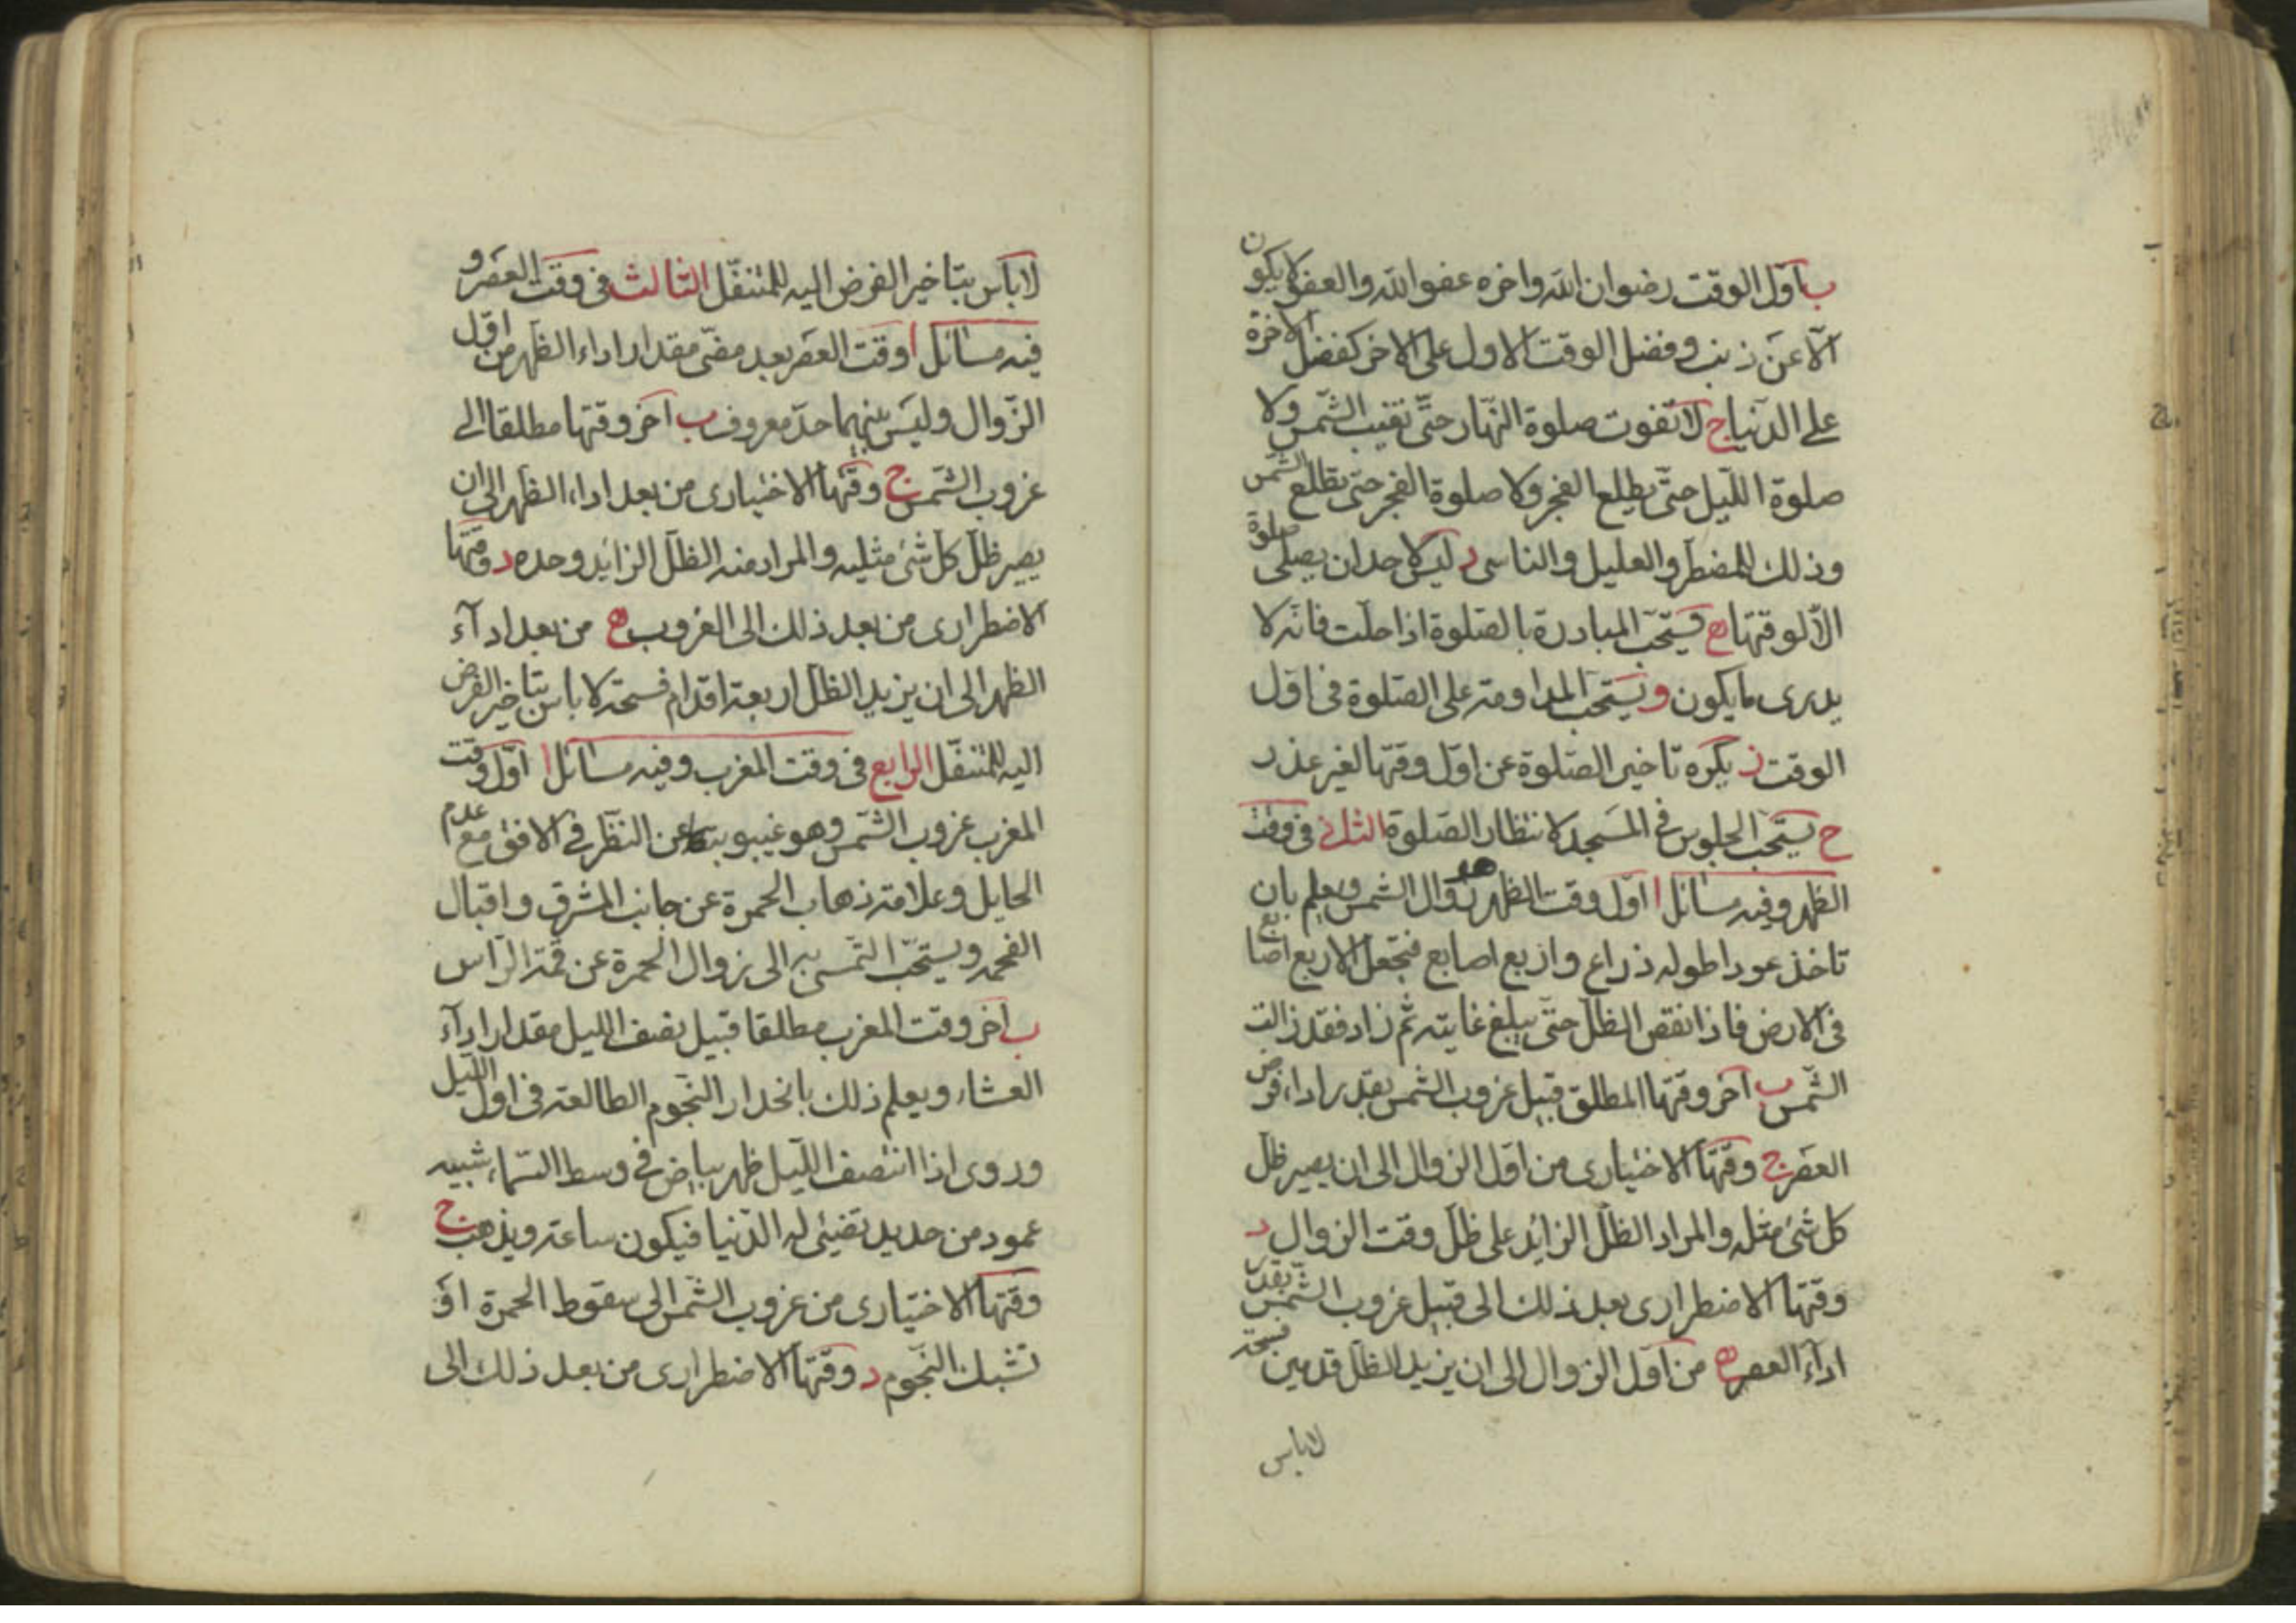 ب اول الوقت رضوان الله واخره عفو الله والعفو لا يكون
الا عن ذنب وفضل الوقت الاول على الاخر كفضل الاخرة
على الدنيا ج لا تفوت صلوة النهار حتى تغيب الشمس ولا
صلوة الليل حتى يطلع الفجر ولا صلوة الفجر حتى تطلع الشمس
وذلك للمضطر والعليل والناسى د ليس لاحد ان يصلى صلوة
الا لوقتها ه يستحب المبادرة بالصلوة اذا حلت فانه لا
يدرى ما يكون و يستحب المداومة على الصلوة فى اول
الوقت ز يكره تاخير الصلوة عن اول وقتها لغير عذر
ح يستحب الجلوس فى المسجد لانتظار الصلوة الثانى فى وقت
الظهر وفيه مسائل ا اول وقت الظهر زوال الشمس ويعلم بان
تاخذ عودا طوله ذراع واربع اصابع فتجعل الاربع اصابع
فى الارض فاذا نقص الظل حتى يبلغ غايته ثم زاد فقد زالت
الشمس ب آخر وقتها المطلق قبيل غروب الشمس بقدر اداء فرض
العصر ج وقتها الاختيارى من اول الزوال الى ان يصير ظل
كل شئ مثله والمراد الظل الزايد على ظل وقت الزوال د
وقتها الاضطرارى بعد ذلك الى قبيل غروب الشمس بقدر
اداء العصر ه من اول الزوال الى ان يزيد الظل قدمين فسحة
لا باس
لا باس بتاخير الفرض اليه للمتنفل الثالث فى وقت العصر و
فيه مسائل ا وقت العصر بعد مضى مقدار اداء الظهر من اول
الزوال وليس بينهما حد معروف ب آخر وقتها مطلقا الى
غروب الشمس ج وقتها الاختيارى من بعد اداء الظهر الى ان
يصير ظل كل شئ مثليه والمراد منه الظل الزايد وحده د وقتها
الاضطرارى من بعد ذلك الى الغروب ه من بعد اداء
الظهر الى ان يزيد الظل اربعة اقدام فسحة لا باس بتاخير الفرض
اليه للمتنفل الرابع فى وقت المغرب وفيه مسائل ا اول وقت
المغرب غروب الشمس وهو غيبوبتها عن النظر فى الافق مع عدم
الحايل وعلامته ذهاب الحمرة عن جانب المشرق واقبال
الفحمة ويستحب التمسى به الى زوال الحمرة عن قمة الراس
ب اخر وقت المغرب مطلقا قبيل نصف الليل مقدار اداء
العشاء ويعلم ذلك بانحدار النجوم الطالعة فى اول الليل
وروى اذا انتصف الليل ظهر بياض فى وسط السماء شبيه
عمود من حديد تضيئ له الدنيا فيكون ساعة ويذهب ج
وقتها الاختيارى من غروب الشمس الى سقوط الحمرة او
تشبك النجوم د وقتها الاضطرارى من بعد ذلك الى